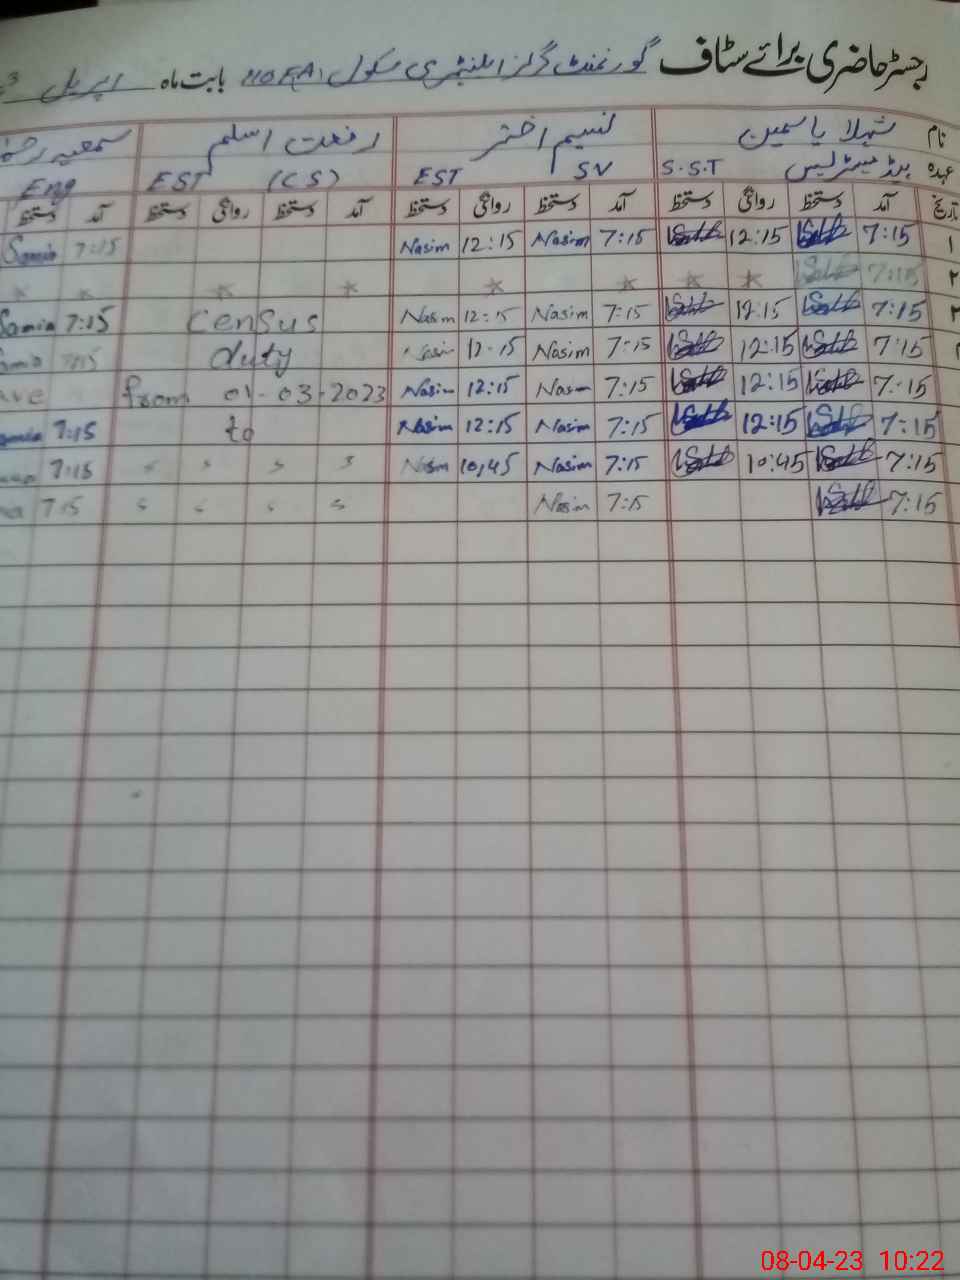 رجسٹر حاضری برائے سٹاف گورنمنٹ گرلز ایلیمنٹری سکول بابت ماہ اپریل
نام شہلا یاسمین نسیم اختر رفعت اسلم سمعیہ
عہدہ ہیڈ مسٹریس S.S.T SV EST (CS) EST Eng
تاریخ آمد دستخط روانگی دستخط آمد دستخط روانگی دستخط آمد دستخط روانگی دستخط آمد دستخط
۱ 7:15 12:15 7:15 Nasim 12:15 Nasim 7:15 Samia
۲ 7:15 * * * * * * * *
۳ 7:15 12:15 7:15 Nasim 12:15 Nasim census 7:15 Samia
7:15 12:15 7:15 Nasim 12:15 Nasim duty 7:15
7:15 12:15 7:15 Nasim 12:15 Nasim from 01-03-2023
7:15 12:15 7:15 Nasim 12:15 Nasim to 7:15
7:15 10:45 7:15 Nasim 10,45 Nasim 7:15
7:15 7:15 Nasim 7:15
08-04-23 10:22